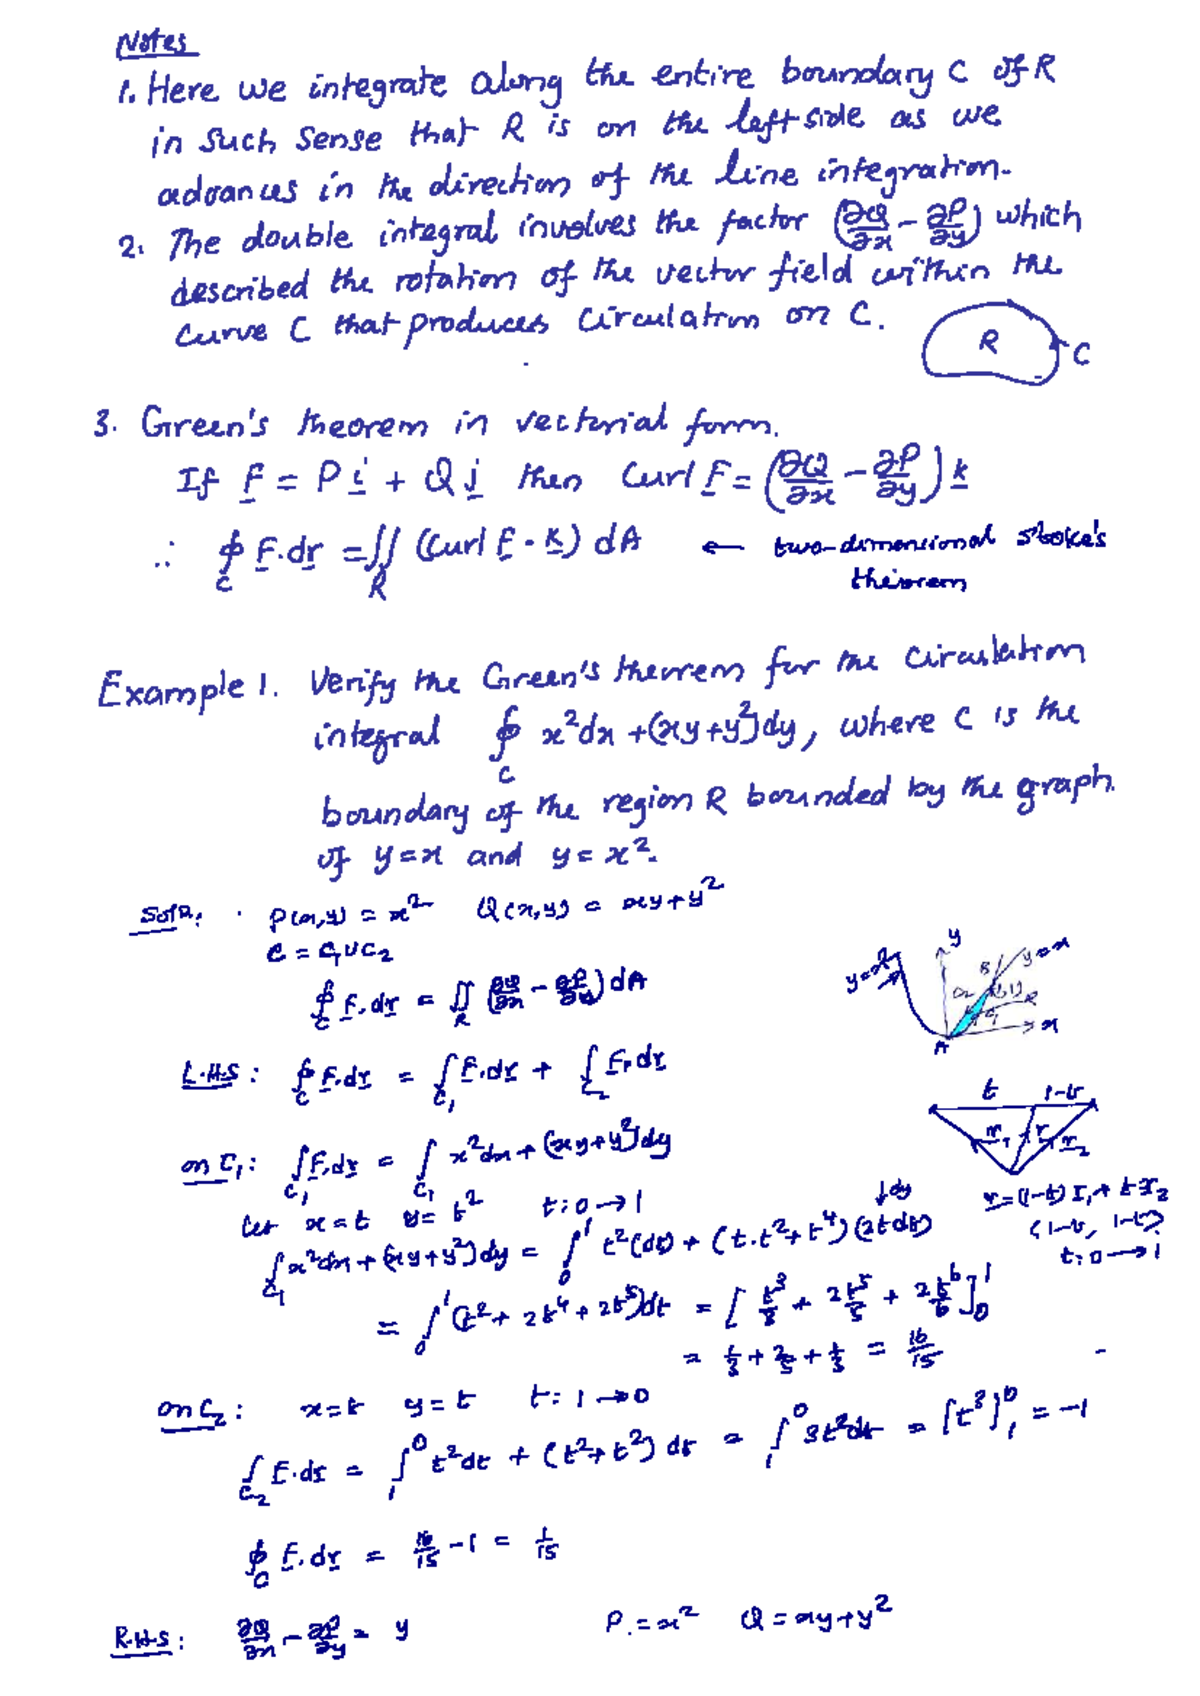 Notes
1. Here we integrate along the entire boundary C of R
in such sense that R is on the left side as we
advances in the direction of the line integration.
2. The double integral involves the factor (∂Q/∂x - ∂P/∂y) which
described the rotation of the vector field within the
curve C that produces circulation on C.
R
C
3. Green's theorem in vectorial form.
If F = P i + Q j then Curl F = (∂Q/∂x - ∂P/∂y) k
∴ ∮_C F.dr = ∬_R (Curl F · k) dA ← two-dimensional stoke's
theorem
Example 1. Verify the Green's theorem for the circulation
integral ∮_C x²dx + (xy+y²)dy, where C is the
boundary of the region R bounded by the graph
of y = x and y = x².
Soln: P(x,y) = x² Q(x,y) = xy+y²
C = C₁∪C₂
∮_C F.dr = ∬_R (∂Q/∂x - ∂P/∂y) dA
y=x² y B y=x C₂ (1,1) R C₁ x A
L.H.S: ∮_C F.dr = ∫_C₁ F.dr + ∫_C₂ F.dr
t 1-t
r₁ r r₂
on C₁: ∫_C₁ F.dr = ∫_C₁ x²dx + (xy+y²)dy
r = (1-t) r₁ + t r₂
(1-t, 1-t)
t: 0 → 1
Let x = t y = t² t: 0 → 1
↓dy
∫_C₁ x²dx + (xy+y²)dy = ∫₀¹ t²(dt) + (t.t²+t⁴)(2t dt)
= ∫₀¹ (t² + 2t⁴ + 2t⁵)dt = [t³/3 + 2t⁵/5 + 2t⁶/6]₀¹
= 1/3 + 2/5 + 1/3 = 16/15
on C₂: x = t y = t t: 1 → 0
∫_C₂ F.dr = ∫₁⁰ t²dt + (t²+t²) dt = ∫₁⁰ 3t²dt = [t³]₁⁰ = -1
∮_C F.dr = 16/15 - 1 = 1/15
R.H.S: ∂Q/∂x - ∂P/∂y = y P = x² Q = xy+y²